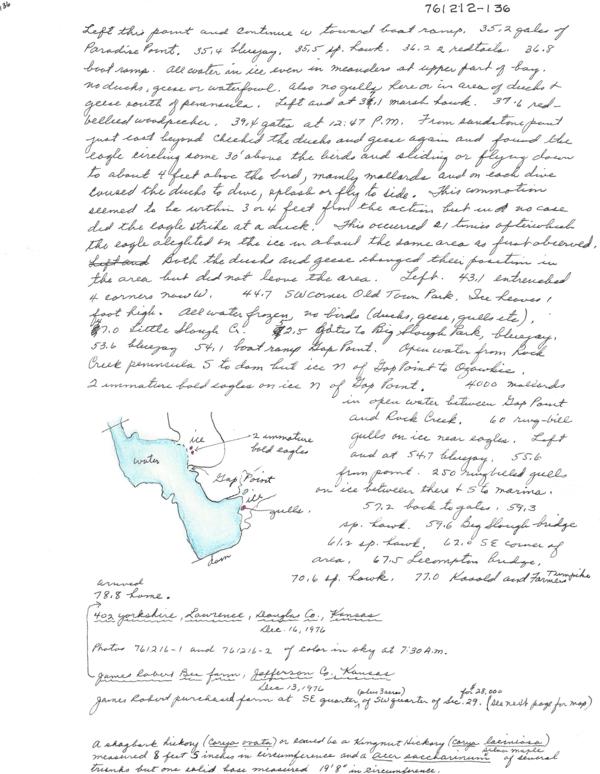 761212-136
Left this point and continue w toward boat ramp. 35.2 gates of
Paradise Point. 35.4 bluejay. 35.5 sp. hawk. 36.2 2 redtails. 36.8
boat ramp. All water in ice even in meanders at upper part of bay.
no ducks, geese or waterfowl. Also no gully here or in area of ducks &
geese south of peninsula. Left and at 37.1 marsh hawk. 37.6 red-
bellied woodpecker. 39.4 gates at 12:47 P.M. From sandstone point
just east beyond checked the ducks and geese again and found the
eagle circling some 30' above the birds and sliding or flying down
to about 4 feet above the bird, mainly mallards and on each dive
caused the ducks to dive, splash or fly to side. This commotion
seemed to be within 3 or 4 feet from the action but in no case
did the eagle strike at a duck. This occurred 21 times after which
the eagle alighted on the ice in about the same area as first observed.
Left and Both the ducks and geese changed their position in
the area but did not leave the area. Left. 43.1 entrenched
4 corners now W. 44.7 SW corner Old Town Park. Ice heaves 1
foot high. All water frozen, no birds (ducks, geese, gulls etc).
47.0 Little Slough Cr. 52.5 gates to Big Slough Park, bluejay.
53.6 bluejay 54.1 boat ramp Gap Point. Open water from Rock
Creek peninsula S to dam but ice N of Gap Point to Ozawkie.
2 immature bald eagles on ice N of Gap Point. 4000 mallards
in open water between Gap Point
and Rock Creek. 60 ring-bill
gulls on ice near eagles. Left
and at 54.7 bluejay. 55.6
from point. 250 ringbilled gulls
on ice between there & S to marina.
57.2 back to gates. 59.3
sp. hawk. 59.6 Big Slough bridge
61.2 sp. hawk. 62.0 SE corner of
area. 67.5 Lecompton bridge.
70.6 sp. hawk. 77.0 Kasold and Farmers Turnpike
ice
2 immature
bald eagles
water
Gap Point
ice
gulls.
dam
arrived
78.8 home.
402 Yorkshire, Lawrence, Douglas Co., Kansas
Dec. 16, 1976
Photos 761216-1 and 761216-2 of color in sky at 7:30 A.M.
James Robert Bee farm, Jefferson Co., Kansas
Dec 13, 1976
James Robert purchased farm at SE quarter, (plus 3 acres) of SW quarter of Sec. 29. for $28,000 (See next page for map)
A shagbark hickory (Carya ovata) or could be a Kingnut Hickory (Carya laciniosa)
measured 8 feet 5 inches in circumference and a Acer saccharinum silver maple of several
trunks but one solid base measured 19'8" in circumference.